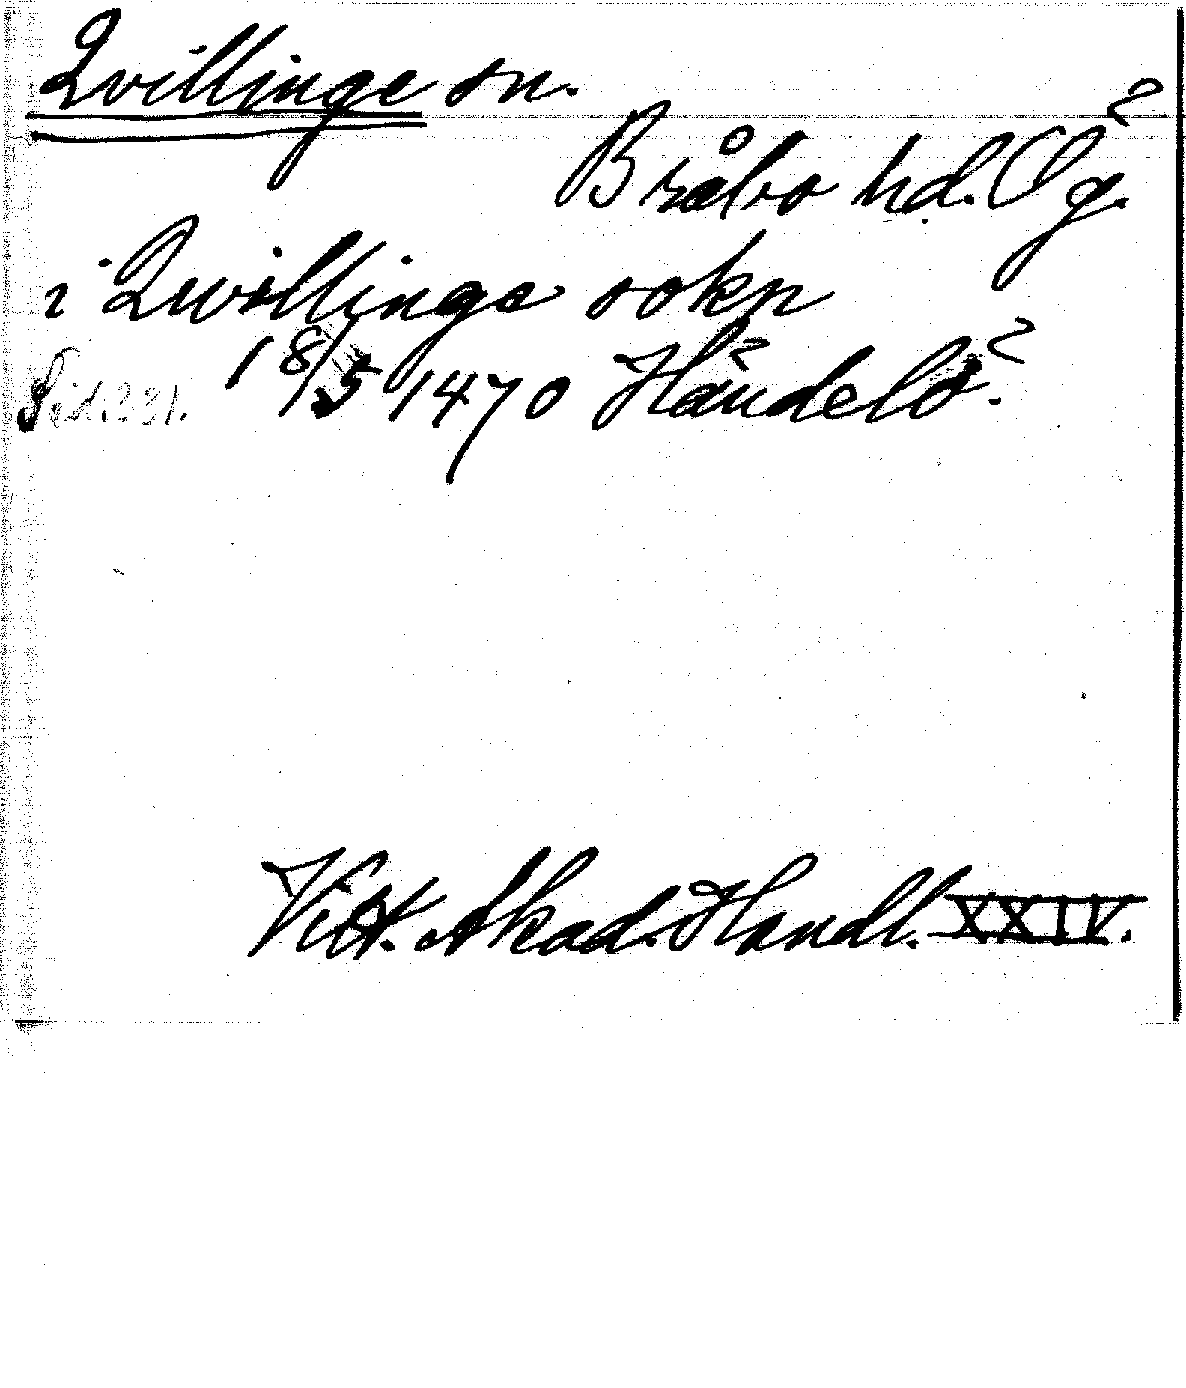 Qvillinge sn.
Bråbo hd. Ög.
i Qwillinge sokn
Sid. 231. 18/5 1470 Händelö.
Vitt. Akad. Handl. XXIV.